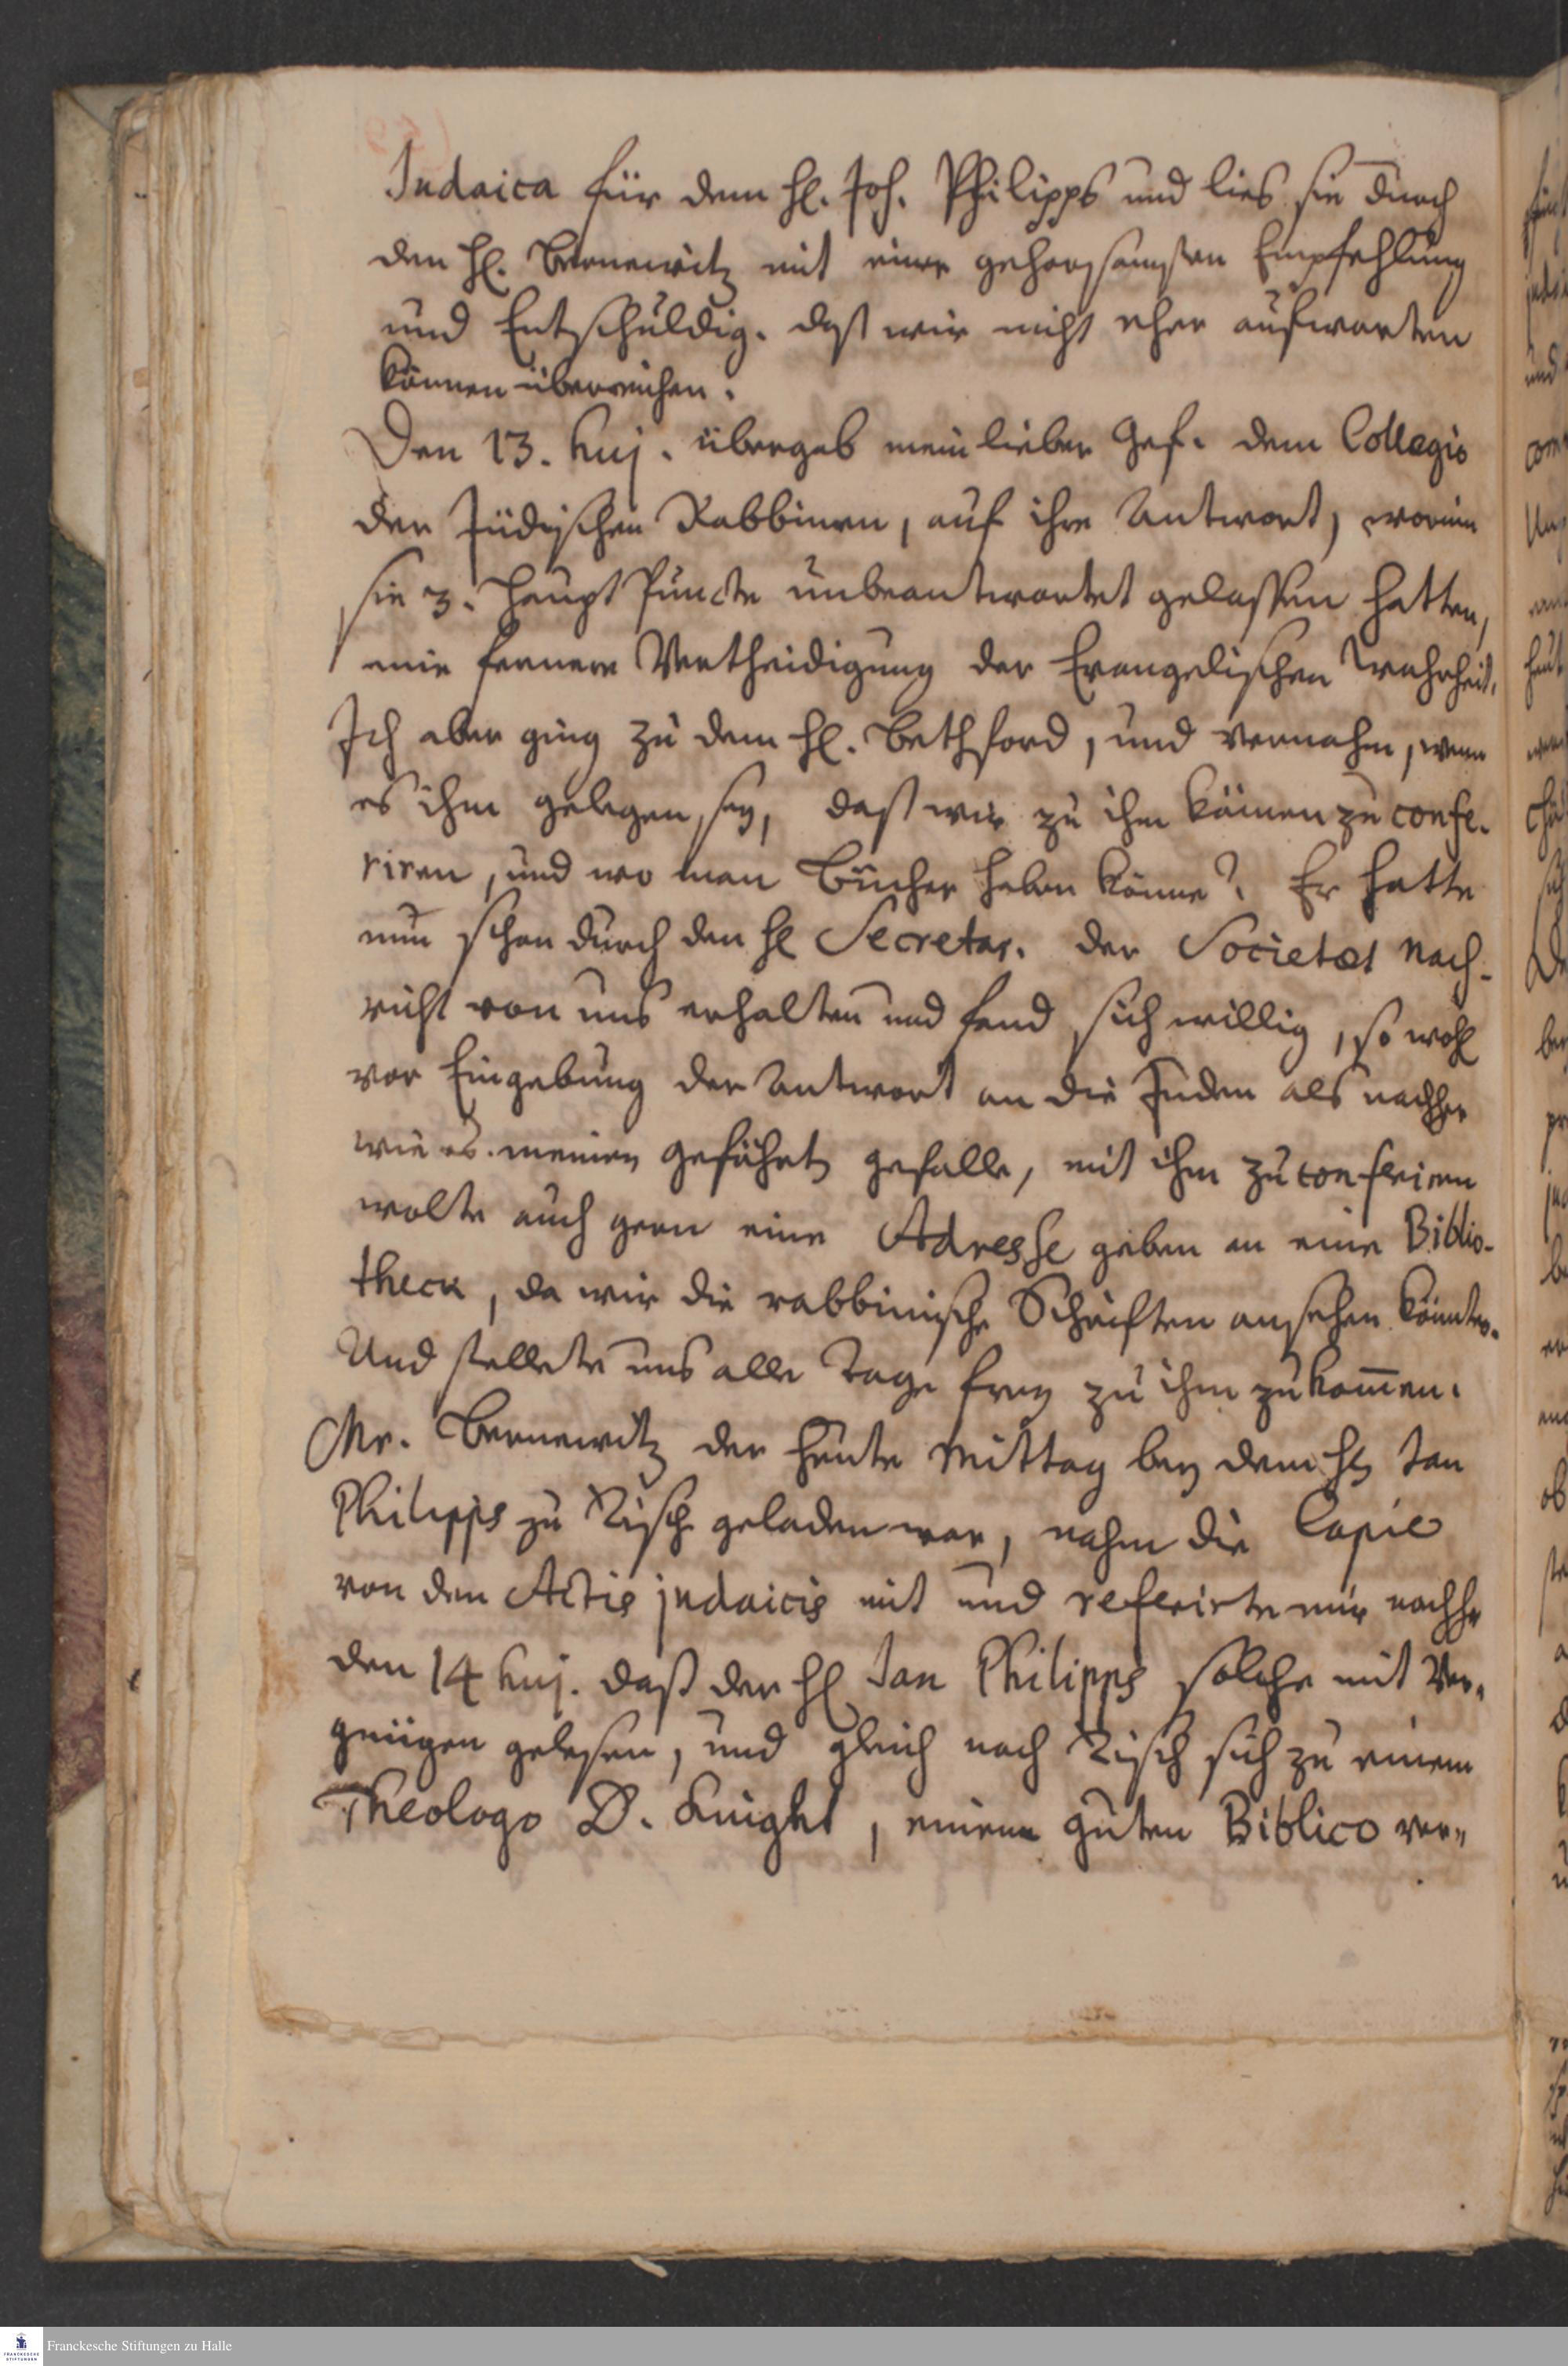 Judaica für dem H. Joh. Philipps und lies sie durch
den H. Bernewitz mit einer gehorsamsten Empfehlung
und Entschuldig. daß wir nicht eher aufwarten
können überreichen.
Den 13. huj. übergab mein lieber Gef. dem Collegio
der Jüdischen Rabbinen, auf ihre Antwort, worinn
sie 3. Haupt Puncte unbeantwortet gelassen hatten,
eine fernere Vertheidigung der Evangelischen Wahrheit.
Ich aber ging zu dem H. Bethford, und vernahm, wenn
es ihm gelegen sey, daß wir zu ihm kämen zu confe-
riren, und wo man Bücher haben könne? Er hatte
nun schon durch den H Secretar. der Societæt Nach-
richt von uns erhalten und fand sich willig, so wohl
vor Eingebung der Antwort an die Juden als nachher
wie es meinen Gefährt gefalle, mit ihm zu conferiren
wolte auch gern eine Adresse geben an eine Biblio-
theck, da wir die rabbinische Schriften ansehen könten.
Und stellete uns alle Tage frey zu ihm zu kommen.
Mr. Bernewitz der heute Mittag bey dem H Jan
Philipps zu Tisch geladen war, nahm die Copie
von den Actis judaicis mit und referirte mir nachher
den 14 huj. daß der H Jan Philipps solche mit Ver-
gnügen gelesen, und gleich nach Tisch sich zu einem
Theologo D. Knight, einem guten Biblico ver-
Franckesche Stiftungen zu Halle
FRANCKESCHE
STIFTUNGEN